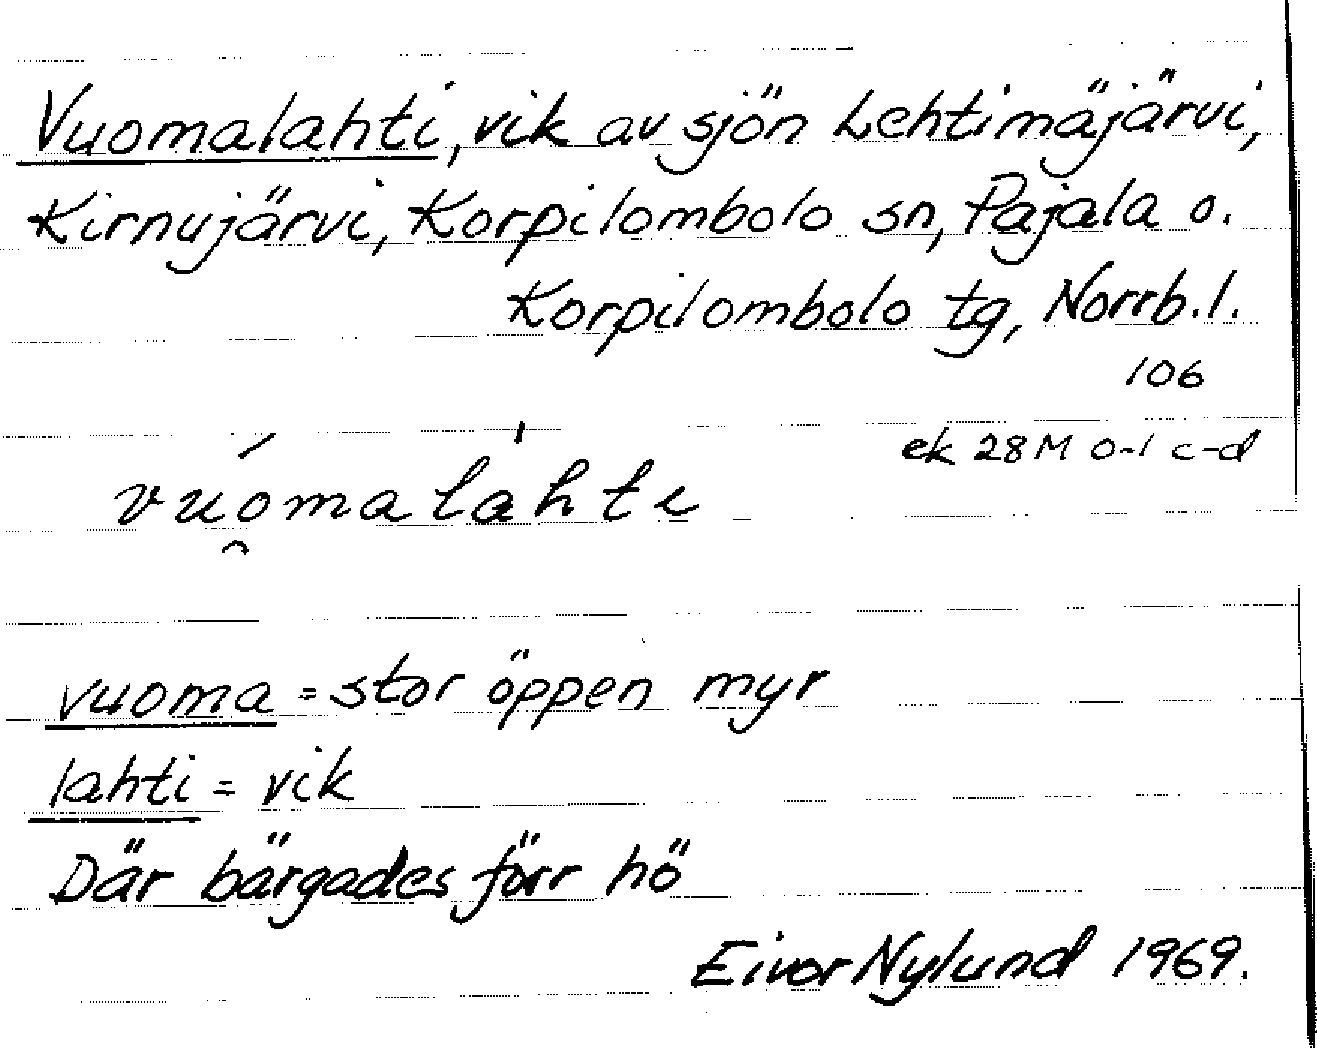 Vuomalahti, vik av sjön Lehtimäjärvi,
Kirnujärvi, Korpilombolo sn, Pajala o.
Korpilombolo tg, Norrb.l.
106
ek 28M 0-1 c-d
vu̯ómalàhti
vuoma = stor öppen myr
lahti = vik
Där bärgades förr hö
Eivor Nylund 1969.